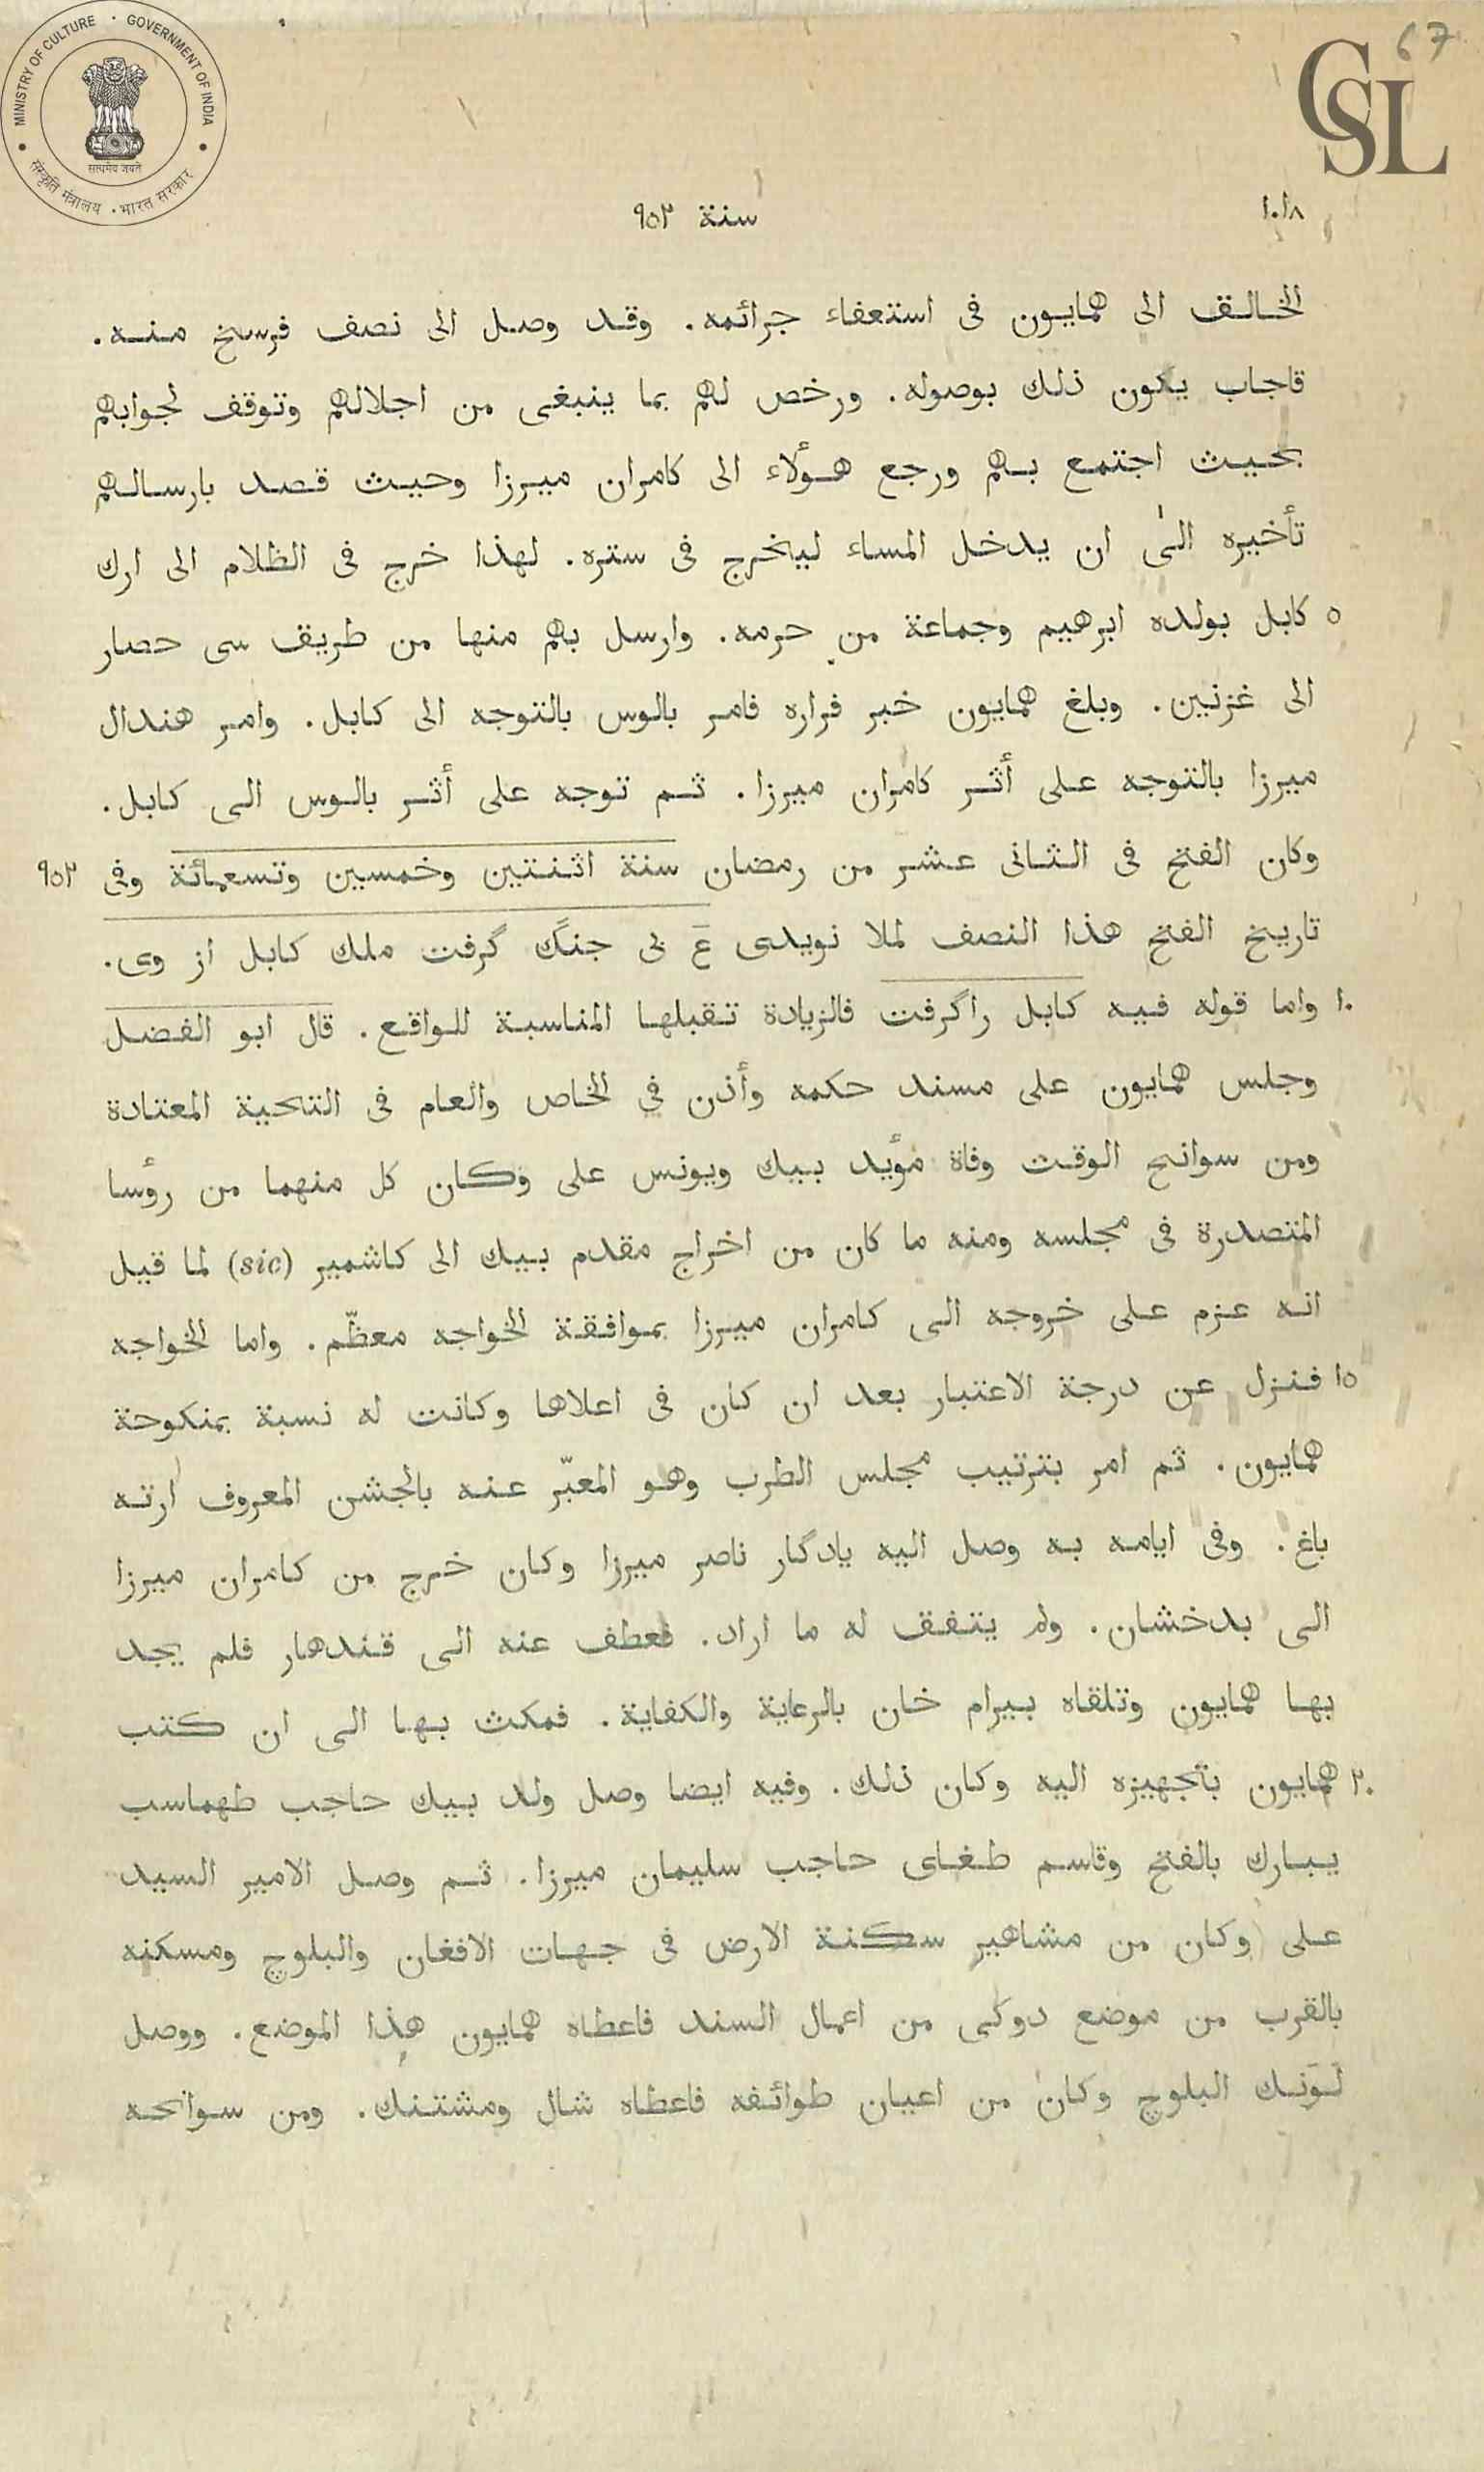 MINISTRY OF CULTURE · GOVERNMENT OF INDIA
सत्यमेव जयते
संस्कृति मंत्रालय · भारत सरकार
CSL
67
١٠١٨ سنة ٩٥٢
الخالق الى همايون فى استعفاء جرائمه. وقد وصل الى نصف فرسخ منه.
قاجاب يكون ذلك بوصوله. ورخص لهم بما ينبغى من اجلالهم وتوقف لجوابهم
بحيث اجتمع بهم ورجع هؤلاء الى كامران ميرزا وحيث قصد بارسالهم
تأخيره الى ان يدخل المساء ليخرج فى ستره. لهذا خرج فى الظلام الى ارك
٥ كابل بولده ابرهيم وجماعة من حرمه. وارسل بهم منها من طريق سى حصار
الى غزنين. وبلغ همايون خبر فراره فامر بالوس بالتوجه الى كابل. وامر هندال
ميرزا بالتوجه على أثر كامران ميرزا. ثم توجه على أثر بالوس الى كابل.
وكان الفتح فى الثانى عشر من رمضان سنة اثنتين وخمسين وتسعمائة وفى ٩٥٢
تاريخ الفتح هذا النصف لملا نويدى عَ بى جنگ گرفت ملك كابل از وى.
١٠ واما قوله فيه كابل را گرفت فالزيادة تقبلها المناسبة للواقع. قال ابو الفضل
وجلس همايون على مسند حكمه وأذن فى الخاص والعام فى التحية المعتادة
ومن سوانح الوقت وفاة مؤيد بيك ويونس على وكان كل منهما من رؤسا
المتصدرة فى مجلسه ومنه ما كان من اخراج مقدم بيك الى كاشمير (sic) لما قيل
انه عزم على خروجه الى كامران ميرزا بموافقة الخواجه معظّم. واما الخواجه
١٥ فنزل عن درجة الاعتبار بعد ان كان فى اعلاها وكانت له نسبة بمنكوحة
همايون. ثم امر بترتيب مجلس الطرب وهو المعبّر عنه بالجشن المعروف ارته
باغ. وفى ايامه به وصل اليه يادگار ناصر ميرزا وكان خرج من كامران ميرزا
الى بدخشان. ولم يتفق له ما اراد. فعطف عنه الى قندهار فلم يجد
بها همايون وتلقاه بيرام خان بالرعاية والكفاية. فمكث بها الى ان كتب
٢٠ همايون بتجهيزه اليه وكان ذلك. وفيه ايضا وصل ولد بيك حاجب طهماسب
يبارك بالفتح وقاسم طغاى حاجب سليمان ميرزا. ثم وصل الامير السيد
على وكان من مشاهير سكنة الارض فى جهات الافغان والبلوج ومسكنه
بالقرب من موضع دوكى من اعمال السند فاعطاه همايون هذا الموضع. ووصل
لَوَنك البلوج وكان من اعيان طوائفه فاعطاه شال ومشتنك. ومن سوانحه